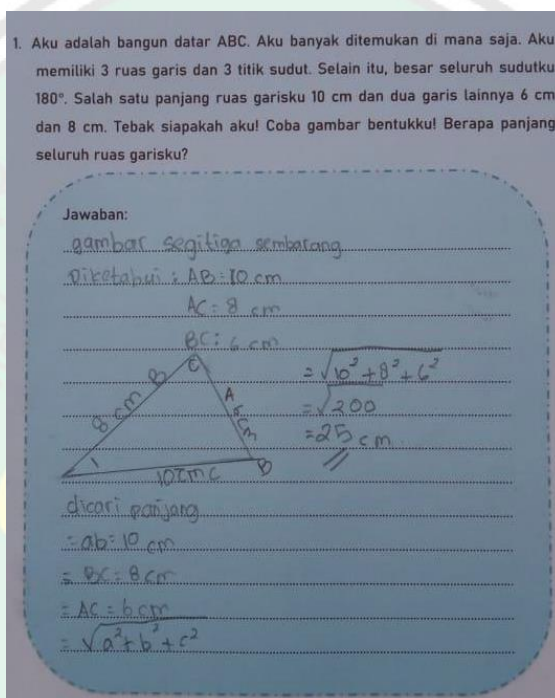 1. Aku adalah bangun datar ABC. Aku banyak ditemukan di mana saja. Aku
memiliki 3 ruas garis dan 3 titik sudut. Selain itu, besar seluruh sudutku
180°. Salah satu panjang ruas garisku 10 cm dan dua garis lainnya 6 cm
dan 8 cm. Tebak siapakah aku! Coba gambar bentukku! Berapa panjang
seluruh ruas garisku?
Jawaban:
gambar segitiga sembarang
Diketahui : AB : 10 cm
AC : 8 cm
BC : 6 cm
C
8 cm B
A 6 cm
10 cm C
B
= √10² + 8² + 6²
= √200
= 25 cm
dicari panjang
= ab = 10 cm
= BC = 8 cm
= AC = 6 cm
= √a² + b² + c²